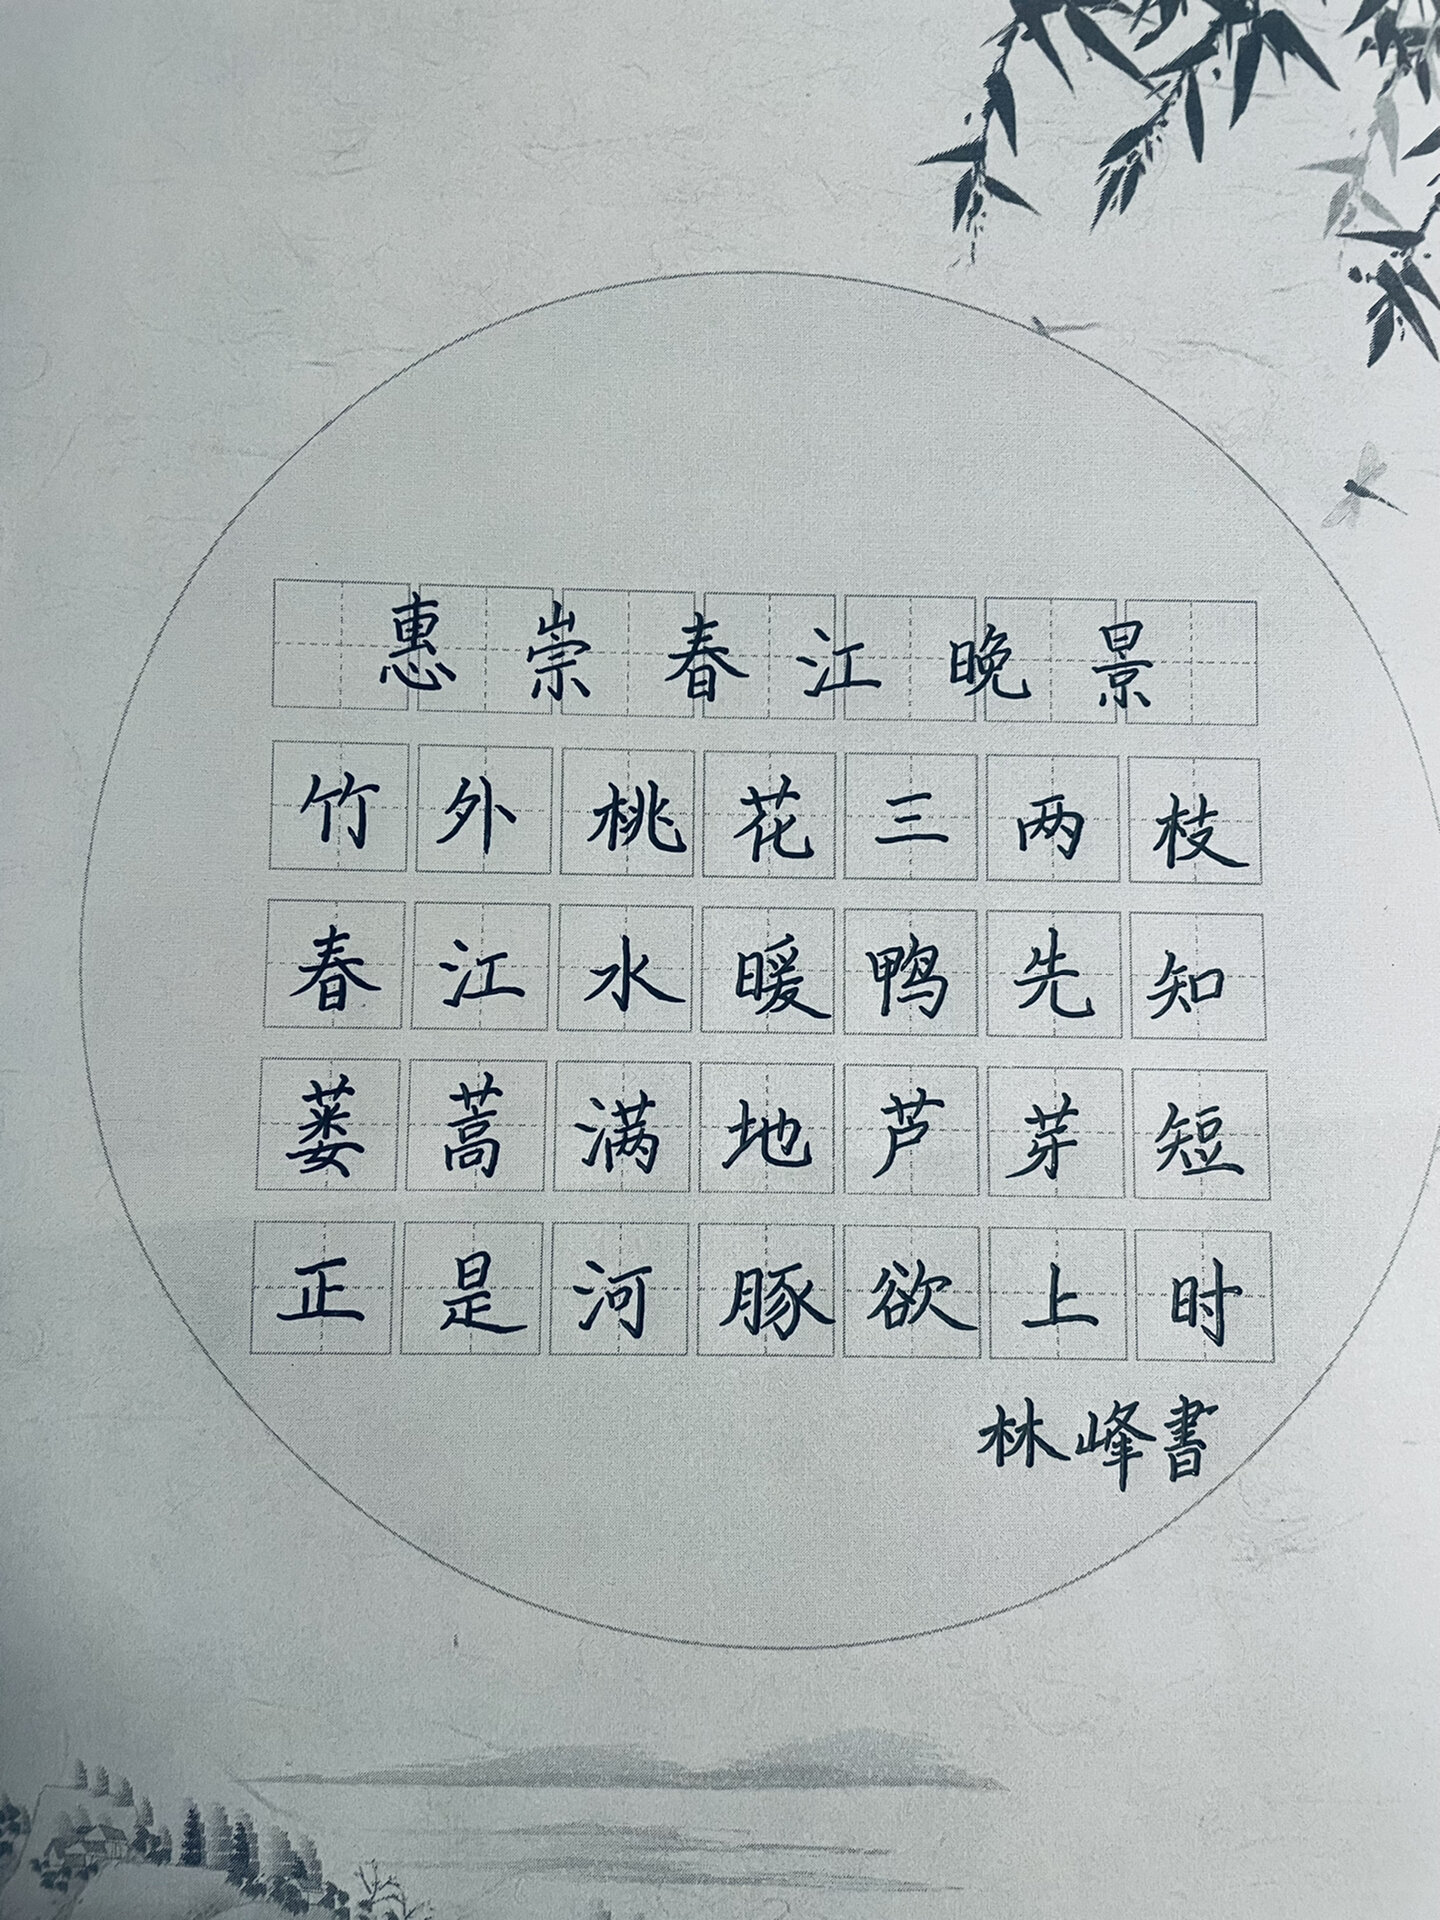 惠崇春江晚景
竹外桃花三两枝
春江水暖鸭先知
蒌蒿满地芦芽短
正是河豚欲上时
林峰書